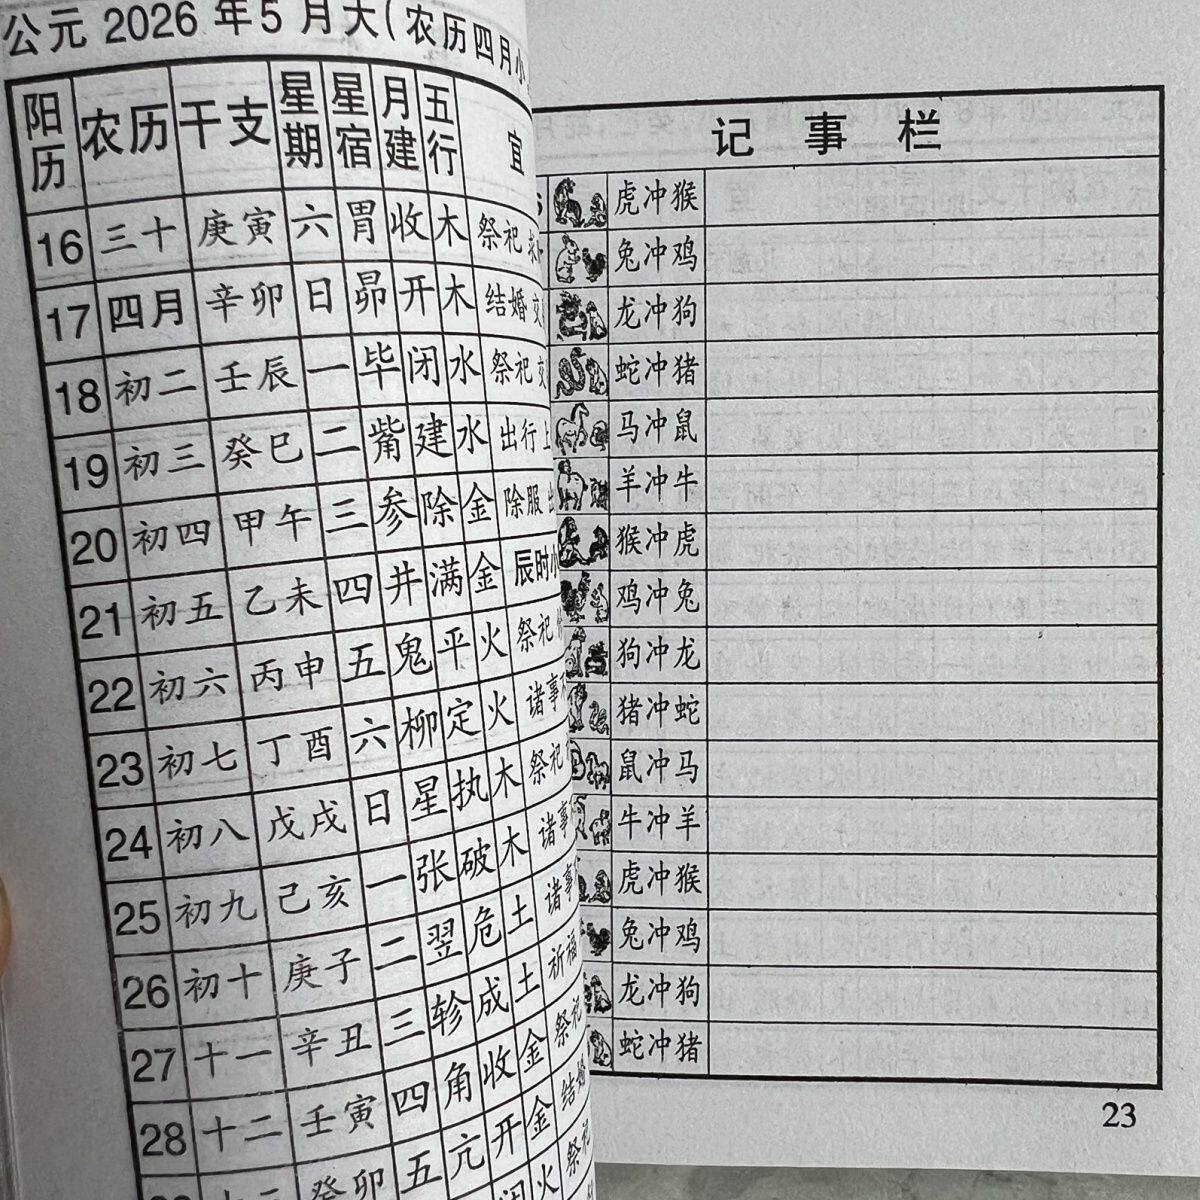 公元 2026 年 5 月大(农历四月小
阳历 农历 干支 星期 星宿 月建 五行 宜
16 三十 庚寅 六 胃 收 木 祭祀
17 四月 辛卯 日 昴 开 木 结婚 交
18 初二 壬辰 一 毕 闭 水 祭祀 交
19 初三 癸巳 二 觜 建 水 出行 上
20 初四 甲午 三 参 除 金 除服 出
21 初五 乙未 四 井 满 金 辰时小
22 初六 丙申 五 鬼 平 火 祭祀
23 初七 丁酉 六 柳 定 火 诸事不
24 初八 戊戌 日 星 执 木 祭祀
25 初九 己亥 一 张 破 木 诸事
26 初十 庚子 二 翌 危 土 诸事
27 十一 辛丑 三 轸 成 土 祈福
28 十二 壬寅 四 角 收 金 祭祀
癸卯 五 亢 开 金 结婚
闭 火 祭祀
记事栏
虎冲猴
兔冲鸡
龙冲狗
蛇冲猪
马冲鼠
羊冲牛
猴冲虎
鸡冲兔
狗冲龙
猪冲蛇
鼠冲马
牛冲羊
虎冲猴
兔冲鸡
龙冲狗
蛇冲猪
23